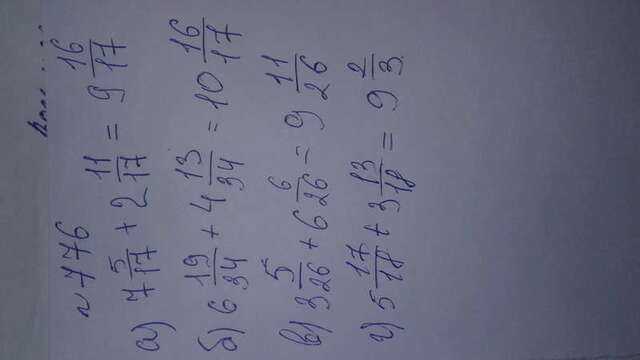 №776
а) 7 5/17 + 2 11/17 = 9 16/17
б) 6 19/34 + 4 13/34 = 10 16/17
в) 3 5/26 + 6 6/26 = 9 11/26
г) 5 17/18 + 3 13/18 = 9 2/3